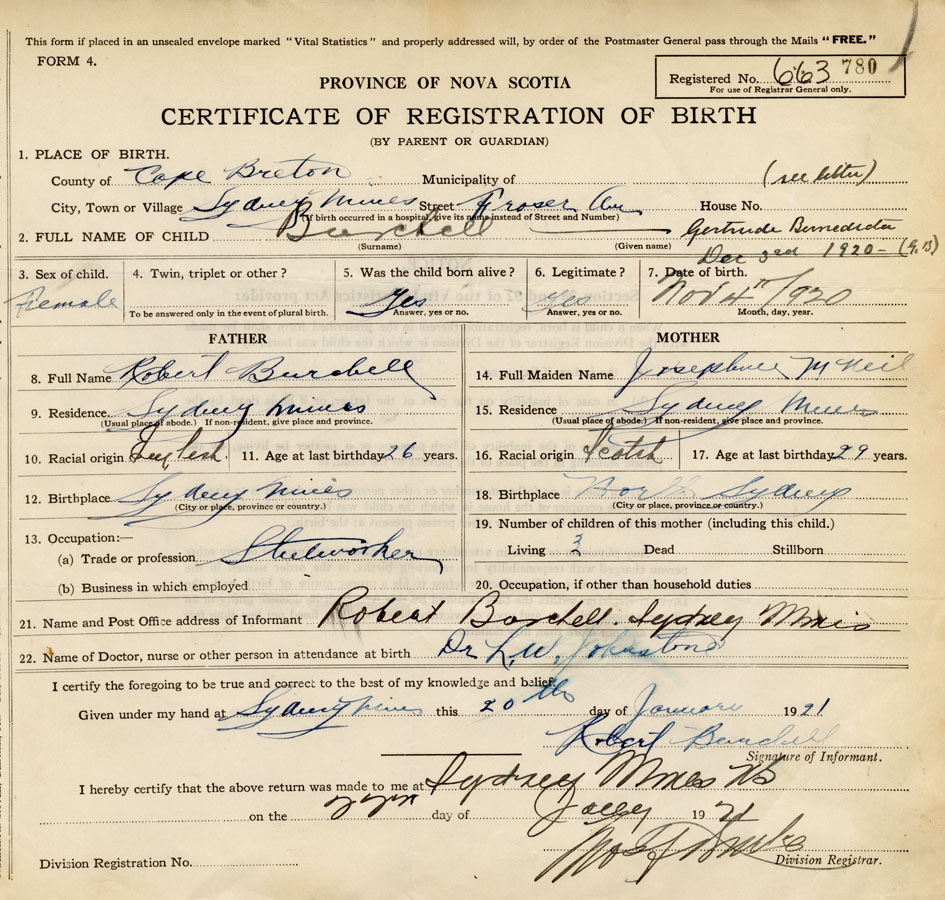 This form if placed in an unsealed envelope marked "Vital Statistics" and properly addressed will, by order of the Postmaster General pass through the Mails "FREE."
FORM 4.
Registered No. 663 780
For use of Registrar General only.
PROVINCE OF NOVA SCOTIA
CERTIFICATE OF REGISTRATION OF BIRTH
(BY PARENT OR GUARDIAN)
1. PLACE OF BIRTH.
County of Cape Breton Municipality of (see letter)
City, Town or Village Sydney Mines Street Fraser Av House No.
(If birth occurred in a hospital, give its name instead of Street and Number)
2. FULL NAME OF CHILD Burchell Gertrude Benedicta
(Surname) (Given name)
Dec 3rd 1920 - (G.B)
3. Sex of child. 4. Twin, triplet or other? 5. Was the child born alive? 6. Legitimate? 7. Date of birth.
Female Yes Yes Nov 4th/1920
To be answered only in the event of plural birth. Answer, yes or no. Answer, yes or no. Month, day, year.
FATHER
8. Full Name Robert Burchell
9. Residence. Sydney Mines
(Usual place of abode.) If non-resident, give place and province.
10. Racial origin English. 11. Age at last birthday 26 years.
12. Birthplace Sydney Mines
(City or place, province or country.)
13. Occupation:—
(a) Trade or profession Steelworker
(b) Business in which employed
MOTHER
14. Full Maiden Name Josephine McNeil
15. Residence Sydney Mines
(Usual place of abode.) If non-resident, give place and province.
16. Racial origin Scotch 17. Age at last birthday 29 years.
18. Birthplace North Sydney
(City or place, province or country.)
19. Number of children of this mother (including this child.)
Living 3 Dead Stillborn
20. Occupation, if other than household duties
21. Name and Post Office address of Informant Robert Burchell. Sydney Mines
22. Name of Doctor, nurse or other person in attendance at birth Dr L.W. Johnstone
I certify the foregoing to be true and correct to the best of my knowledge and belief.
Given under my hand at Sydney Mines this 20th day of January 1921
Robert Burchell
Signature of Informant.
I hereby certify that the above return was made to me at Sydney Mines NS
on the day of 1921
Division Registration No. Division Registrar.